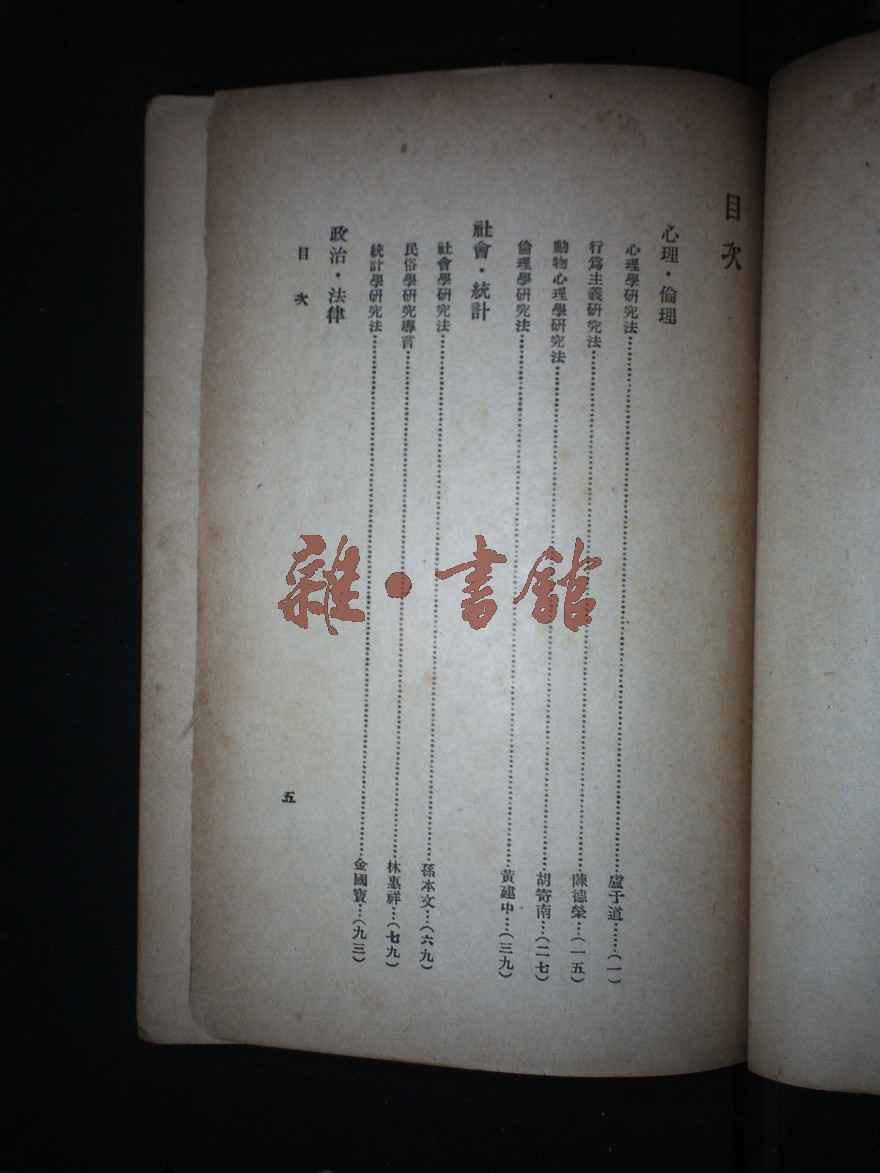 目次
心理・倫理
心理學研究法……盧于道……(一)
行爲主義研究法……陳德榮…(一五)
動物心理學研究法……胡寄南…(二七)
倫理學研究法……黃建中…(三九)
社會・統計
社會學研究法……孫本文…(六九)
民俗學研究導言……林惠祥…(七九)
統計學研究法……金國寶…(九三)
政治・法律
目次
五
雜・書館